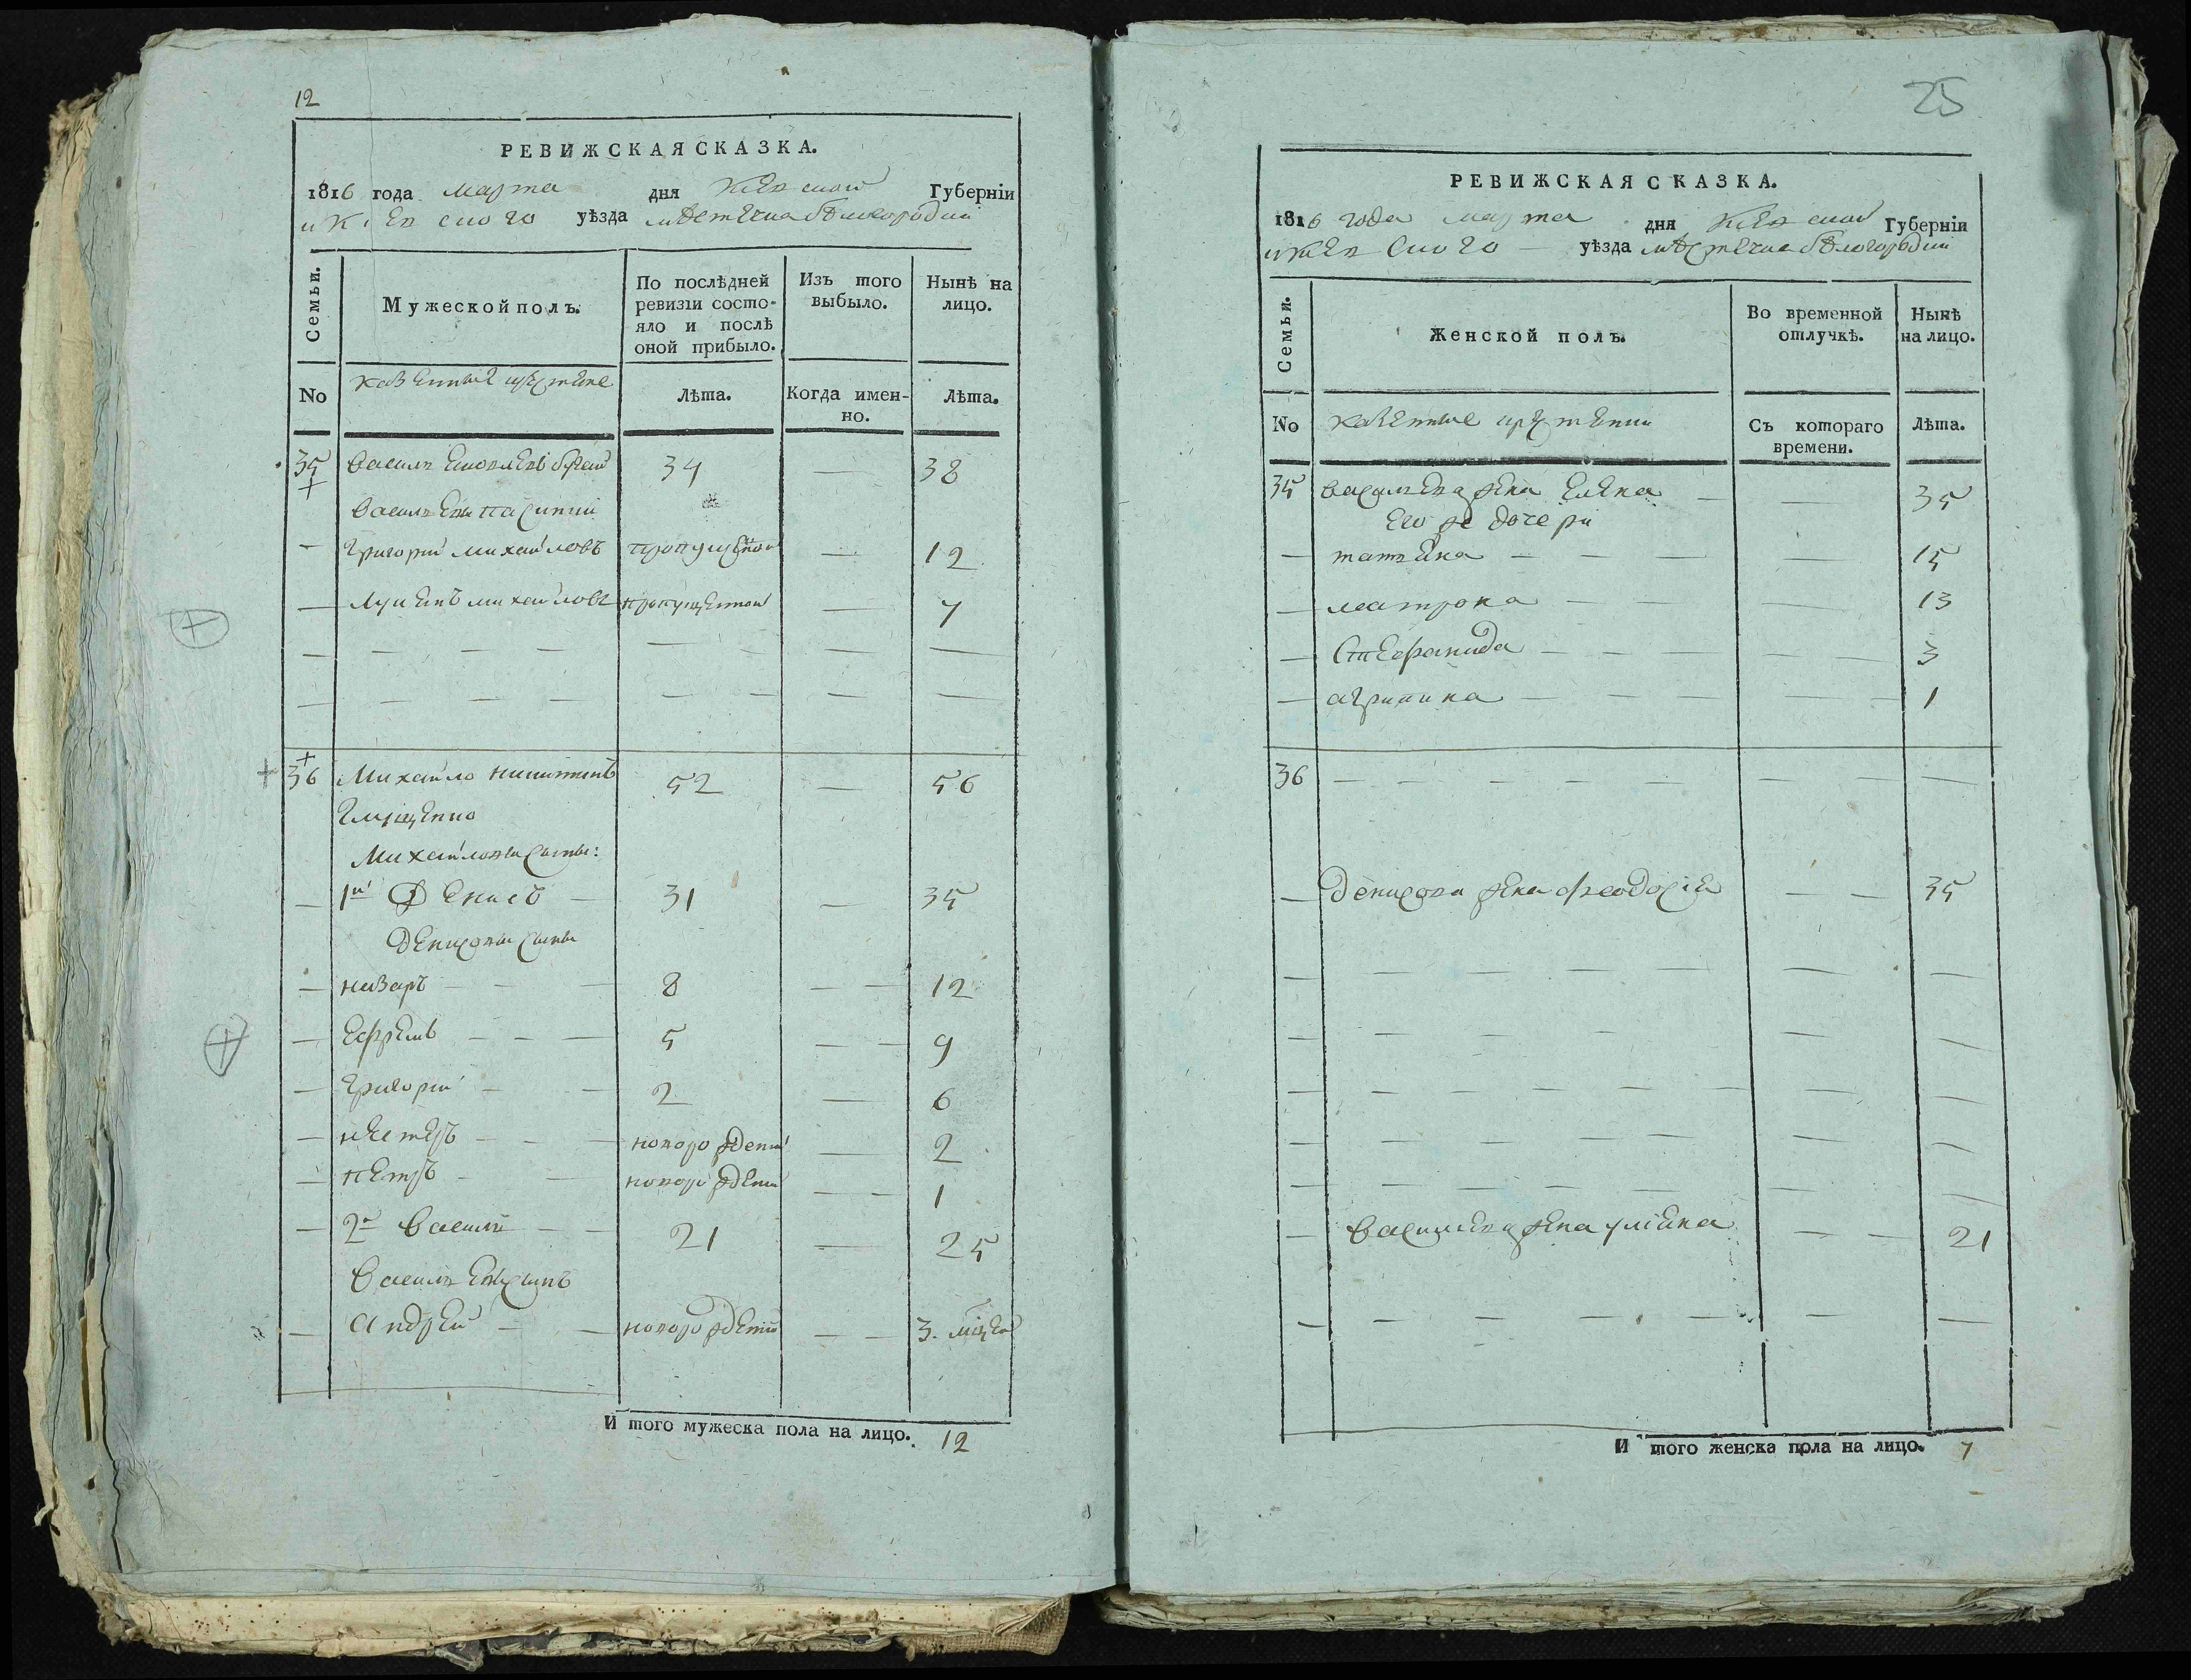 12
РЕВИЖСКАЯ СКАЗКА.
1816 года марта дня Киевской Губерніи
и Киевского уѣзда мѣстечка бѣлогородки
Семьи.
Мужеской полъ.
По послѣдней ревизіи состояло и послѣ оной прибыло.
Изъ того выбыло.
Нынѣ на лицо.
No
казенные крестяне
Лѣта.
Когда именно.
Лѣта.
35 Василь 34 — 38
Василевы пасинки
— Григорий михайловъ пропущенной — 12
— михайловъ пропущенной — 7
36 Михайло никитинъ 52 — 56
Глущенко
Михайловы сыны:
— 1й Денисъ — 31 — 35
Денисовы сыны
— назаръ — 8 — 12
— Ефремъ — 5 — 9
— Григорий — 2 — 6
— нестеръ — новорожденний — 2
— петръ — новорожденний — 1
— 2й Василий — 21 — 25
Василевъ сынъ
— Андрей — новорожденний — 3. мцей
И того мужеска пола на лицо. 12
25
РЕВИЖСКАЯ СКАЗКА.
1816 года марта дня Киевской Губерніи
и Киевского — уѣзда мѣстечка бѣлогородки
Семьи.
Женской полъ.
Во временной отлучкѣ.
Нынѣ на лицо.
No
казенные крестянки
Съ котораго времени.
Лѣта.
35 василева жена Елена — — 35
Его же дочери
— татьяна — — 15
— матрона — — 13
— Стефанида — — 3
— агрипина — — 1
36 — — —
— денисова жена феодосія — — 35
— василева жена улияна — — 21
И того женска пола на лицо. 7